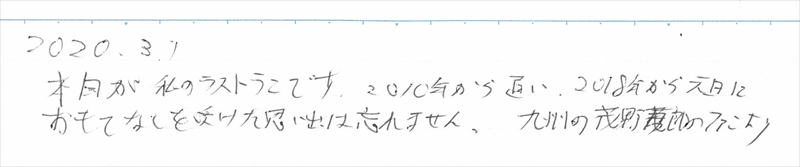 2020.3.1
本日が私のラストうこです。2010年から通い、2018年から元日に
おもてなしを受けた思い出は忘れません。 九州の茂野 のファンより